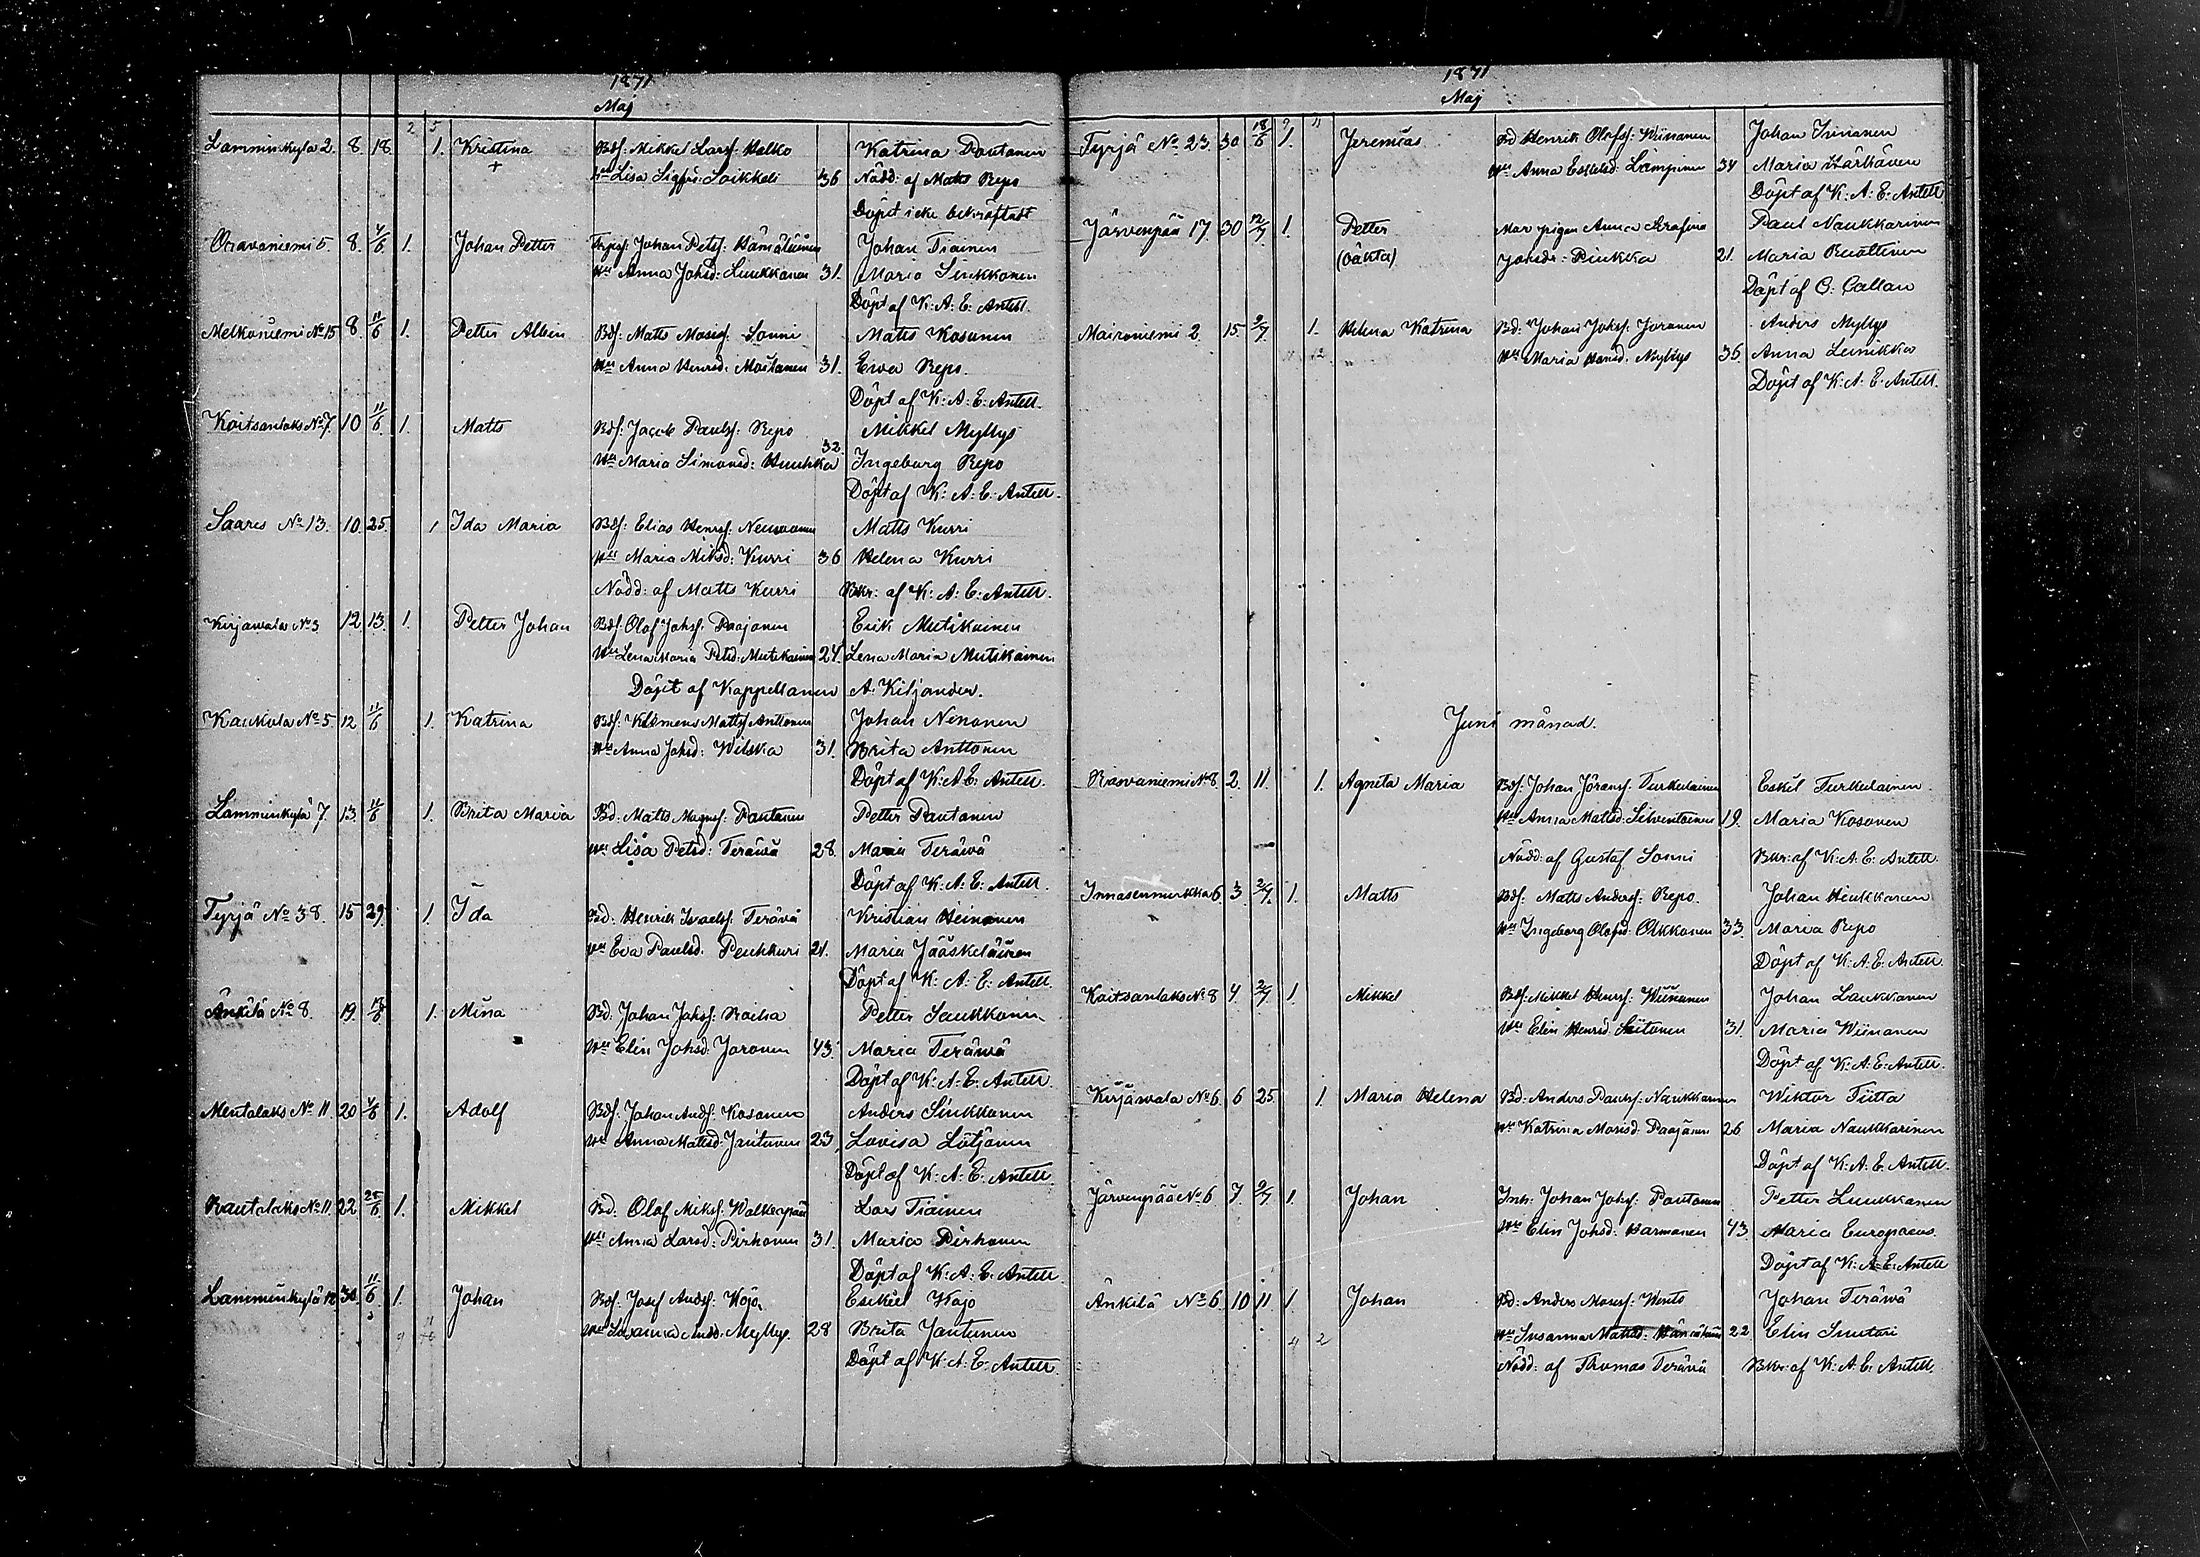 1871
Maj
Lamminkylä 2. 8. 18. 1. Kristina Bdf: Mikkel Larsf: Halko Katrina Pautanen
+ Hu Lisa Sigfrd: Saikkeli 36 Nödd: af Matts Repo
Döpt icke bekräftadt
Oravaniemi 5 8. 4/6 1. Johan Petter Johan Petsf: Hämäläinen Johan Tiainen
Hu Anna Johsd: Luukkanen 31. Maria Sinkkonen
Döpt af K: A: E: Antell.
Melkoniemi No 15 8. 11/6 1. Petter Albin Bdf: Matts Mosesf: Sonni Matts Kosonen
Hu Anna Henrsd: Moskanen 31. Ewa Repo.
Döpt af K: A: E: Antell.
Koitsanlaks No 7. 10 11/6 1. Matts Bdf: Jacob Paulsf: Repo Mikkel Myllys
Hu Maria Simonsd: Huuhka 32. Ingeborg Repo
Döpt af K: A: E: Antell.
Saares No 13. 10. 25. 1 Ida Maria Bdf: Elias Henrsf: Neuvonen Matts Kurri
Hu Maria Miksd: Kurri 36 Helena Kurri
Nödd: af Matts Kurri Bkr: af K: A: E: Antell.
Kirjawala No 3 12. 13. 1. Petter Johan Bdf: Olof Johsf: Paajanen Erik Mutikainen
Hu Lena Maria Petsd: Mutikainen 24. Lena Maria Mutikainen
Döpt af Kappellanen A. Kiljander.
Kaukola No 5 12 11/6 1. Katrina Bdf: Klemens Mattsf Anttonen Johan Nenonen
Hu Anna Johsd: Wilska 31. Brita Anttonen
Döpt af K: A: E: Antell.
Lamminkylä 7. 13. 11/6 1. Brita Maria Bd: Matts Magnsf: Pautanen Petter Pautanen
Hu Lisa Petsd: Teräwä 28. Maria Teräwä
Döpt af K: A: E: Antell.
Tyrjä No 38. 15 29. 1. Ida Bd: Henrik Israelsf: Terävä Kristian Heinonen
Hu Eva Paulsd. Peuhkuri 21. Maria Jääskeläinen
Döpt af K: A: E: Antell.
Änkilä No 8. 19. 18/6 1. Mina Bd. Johan Johsf: Rocka Petter Saukkonen
Hu Elin Johsd: Joronen 43. Maria Teräwä
Döpt af K: A: E: Antell.
Mentalaks No 11. 20 4/6 1. Adolf Bdf: Johan Andsf: Kosonen Anders Sinkkonen
Hu Anna Mattsd: Jantunen 23 Lovisa Lötjönen
Döpt af K: A: E: Antell.
Rautalaks No 11. 22 25/6 1. Mikkel Bd. Olof Miksf: Walkeapää Lars Tiainen
Hu Anna Larsd: Pirhonen 31. Maria Pirhonen
Döpt af K: A: E: Antell.
Lamminkylä 12 30. 11/6 1. Johan Bdf: Josef Andsf: Kojo. Esikiel Kojo
Hu Andsd: Myllys. 28 Brita Jantunen
Döpt af K: A: E: Antell.
1871
Maj
Tyrjä No 23. 30 18/6 1. Jeremias Bd Henrik Olofsf: Wiinanen Johan Iinnanen
Hu Anna Eskelsd: Lampinen 34 Maria Härkönen
Döpt af K: A: E: Antell
Järvenpää 17. 30 12/7. 1. Petter Mor pigan Anna Serafina Paul Naukkarinen
(Oäkta) Johsdr: Piukka 21. Maria Ruottinen
Döpt af O: Callan
Moironiemi 2. 15. 2/7. 1. Helena Katrina Bd: Johan Johsf: Joronen Anders Myllys
Hu Maria Hansd. Myllys 36. Anna Leinikka
Döpt af K: A: E: Antell.
Juni månad.
Rasvaniemi No 8. 2. 11. 1. Agneta Maria Bdf: Johan Göransf: Turkulainen Eskil Turkulainen
Hu Anna Mattsd: Silventoinen 19. Maria Kosonen
Nödd: af Gustaf Sonni Bkr: af K: A: E: Antell
Innasenmurkka 6 3. 2/7. 1. Matts Bdf: Matts Andersf: Repo. Johan Heukkanen
Hu Ingeborg Olofsd: Olkkonen 33. Maria Repo
Döpt af K: A: E: Antell.
Koitsanlaks No 8 4. 2/7 1. Mikkel Bdf: Mikkel Henrsf: Wiinanen Johan Laukkanen
Hu Elin Henrsd: Siitonen 31 Maria Wiinanen
Döpt af K: A: E: Antell.
Kirjäwala No 6. 6 25 1. Maria Helena Bd: Anders Paulsf: Naukkarinen Wiktor Tiitta
Hu Katrina Morisd: Paajanen 26 Maria Naukkarinen
Döpt af K: A: E. Antell.
Järvenpää No 6 7. 9/7 1. Johan Inh: Johan Johsf: Pautanen Petter Luukkanen
Hu Elin Johsd: Harmanen 43. Maria Europaeus.
Döpt af K: A: E: Antell
Änkilä No 6. 10 11 1. Johan Bd: Anders Mosesf: Wento Johan Teräwä
Hu Susanna Mattsd: Hämäläinen 22 Elin Suutari
Nödd: af Thomas Terävä Bkr: af K: A: E: Antell.